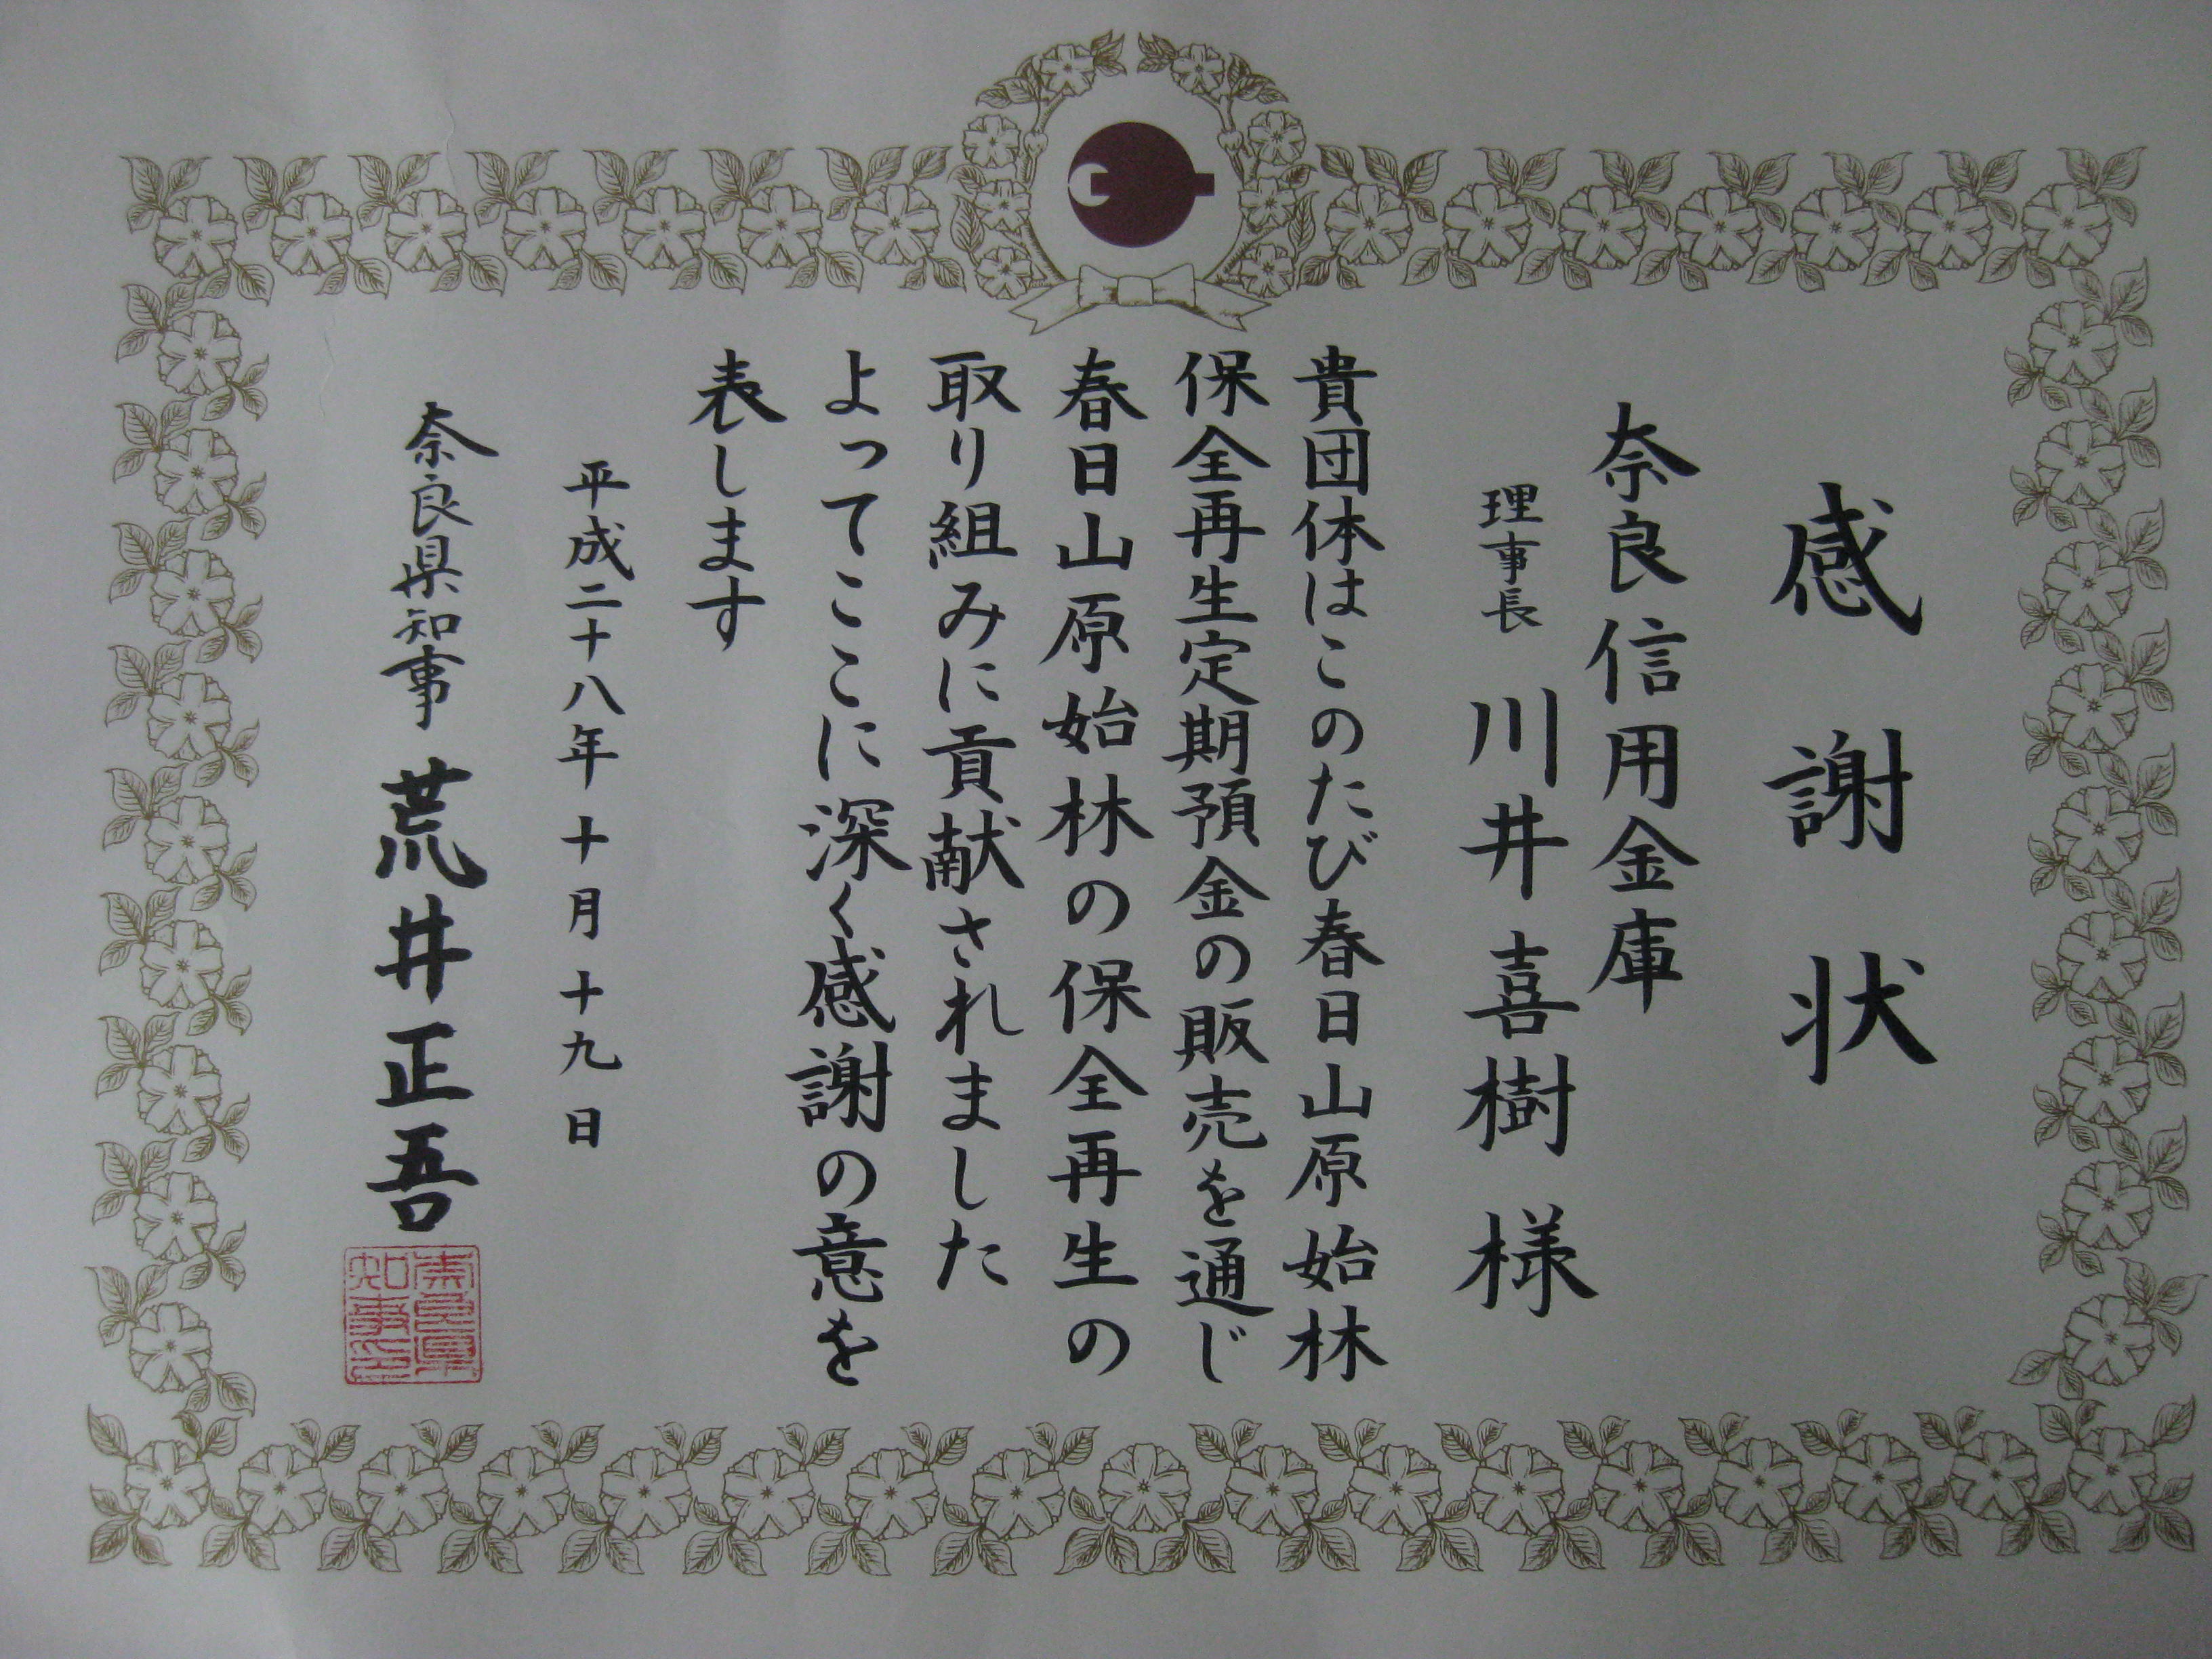 感謝状
奈良信用金庫
理事長 川井喜樹様
貴団体はこのたび春日山原始林
保全再生定期預金の販売を通じ
春日山原始林の保全再生の
取り組みに貢献されました
よってここに深く感謝の意を
表します
平成二十八年十月十九日
奈良県知事 荒井正吾
奈良県
知事印